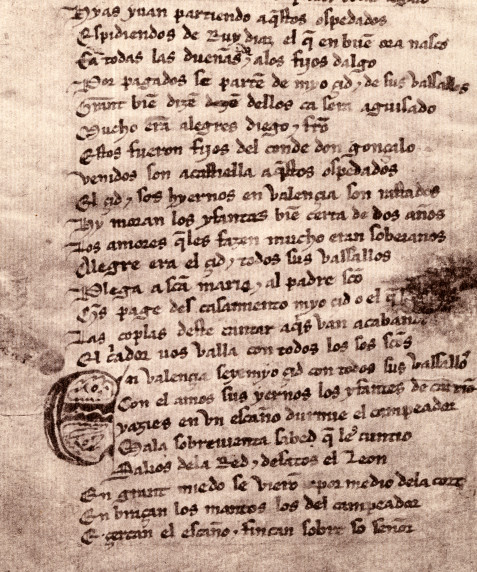 Hyas yuan partiendo aq̃stos ospedados
Espidiendos de Ruy diaz el q̃ en buẽ ora nasco
E a todas las dueñas ⁊ alos fijos dalgo
Por pagados se partẽ de myo çid ⁊ de sus vassallos
Grant biẽ dizẽ dellos ca sera aguisado
Mucho erã alegres diego ⁊ frõ
Estos fueron fijos del conde don gonçalo
venidos son a castiella aq̃stos ospedados
El çid ⁊ sos hyernos en valençia son rastados
Hy moran los yfantes biẽ çerca de dos años
Los amores q̃les fazen mucho eran sobeianos
Alegre era el çid ⁊ todos sus vassallos
Plega a scã maria ⁊ al padre scõ
Q̃s page des casamiento myo çid o el q̃
Las coplas deste cantar aq̃s van acabando
El c̃ador uos valla con todos los sos scõs
En valençia seye myo çid con todos sus vassallos
Con el amos sus yernos los yfantes de carriõ
yazies en vn escaño durmie el campeador
Mala sobreuienta sabed q̃ les cuntio
Salios dela Red ⁊ desatos el Leon
En grant miedo se vierõ por medio dela cort
Enbraçan los mantos los del campeador
E çercan el escaño ⁊ fincan sobre so señor